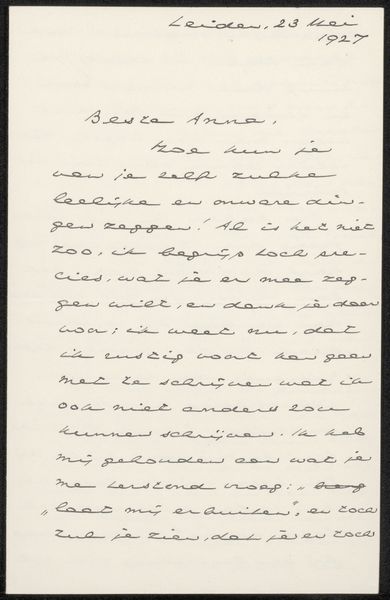 Leiden, 23 Mei
1927
Beste Anna,
Hoe kun je
van je zelf zulke
leelijke en onware din-
gen zeggen! Al is het niet
zoo, ik begrijp toch pre-
cies, wat je er mee zeg-
gen wilt, en dank je daar
voor; ik weet nu, dat
ik rustig voort kan gaan
met te schrijven wat ik
ook niet anders zou
kunnen schrijven. Ik heb
mij gehouden aan wat je
me terstond vroeg: „
„laat mij erbuiten", en toch
zul je zien, dat je er toch